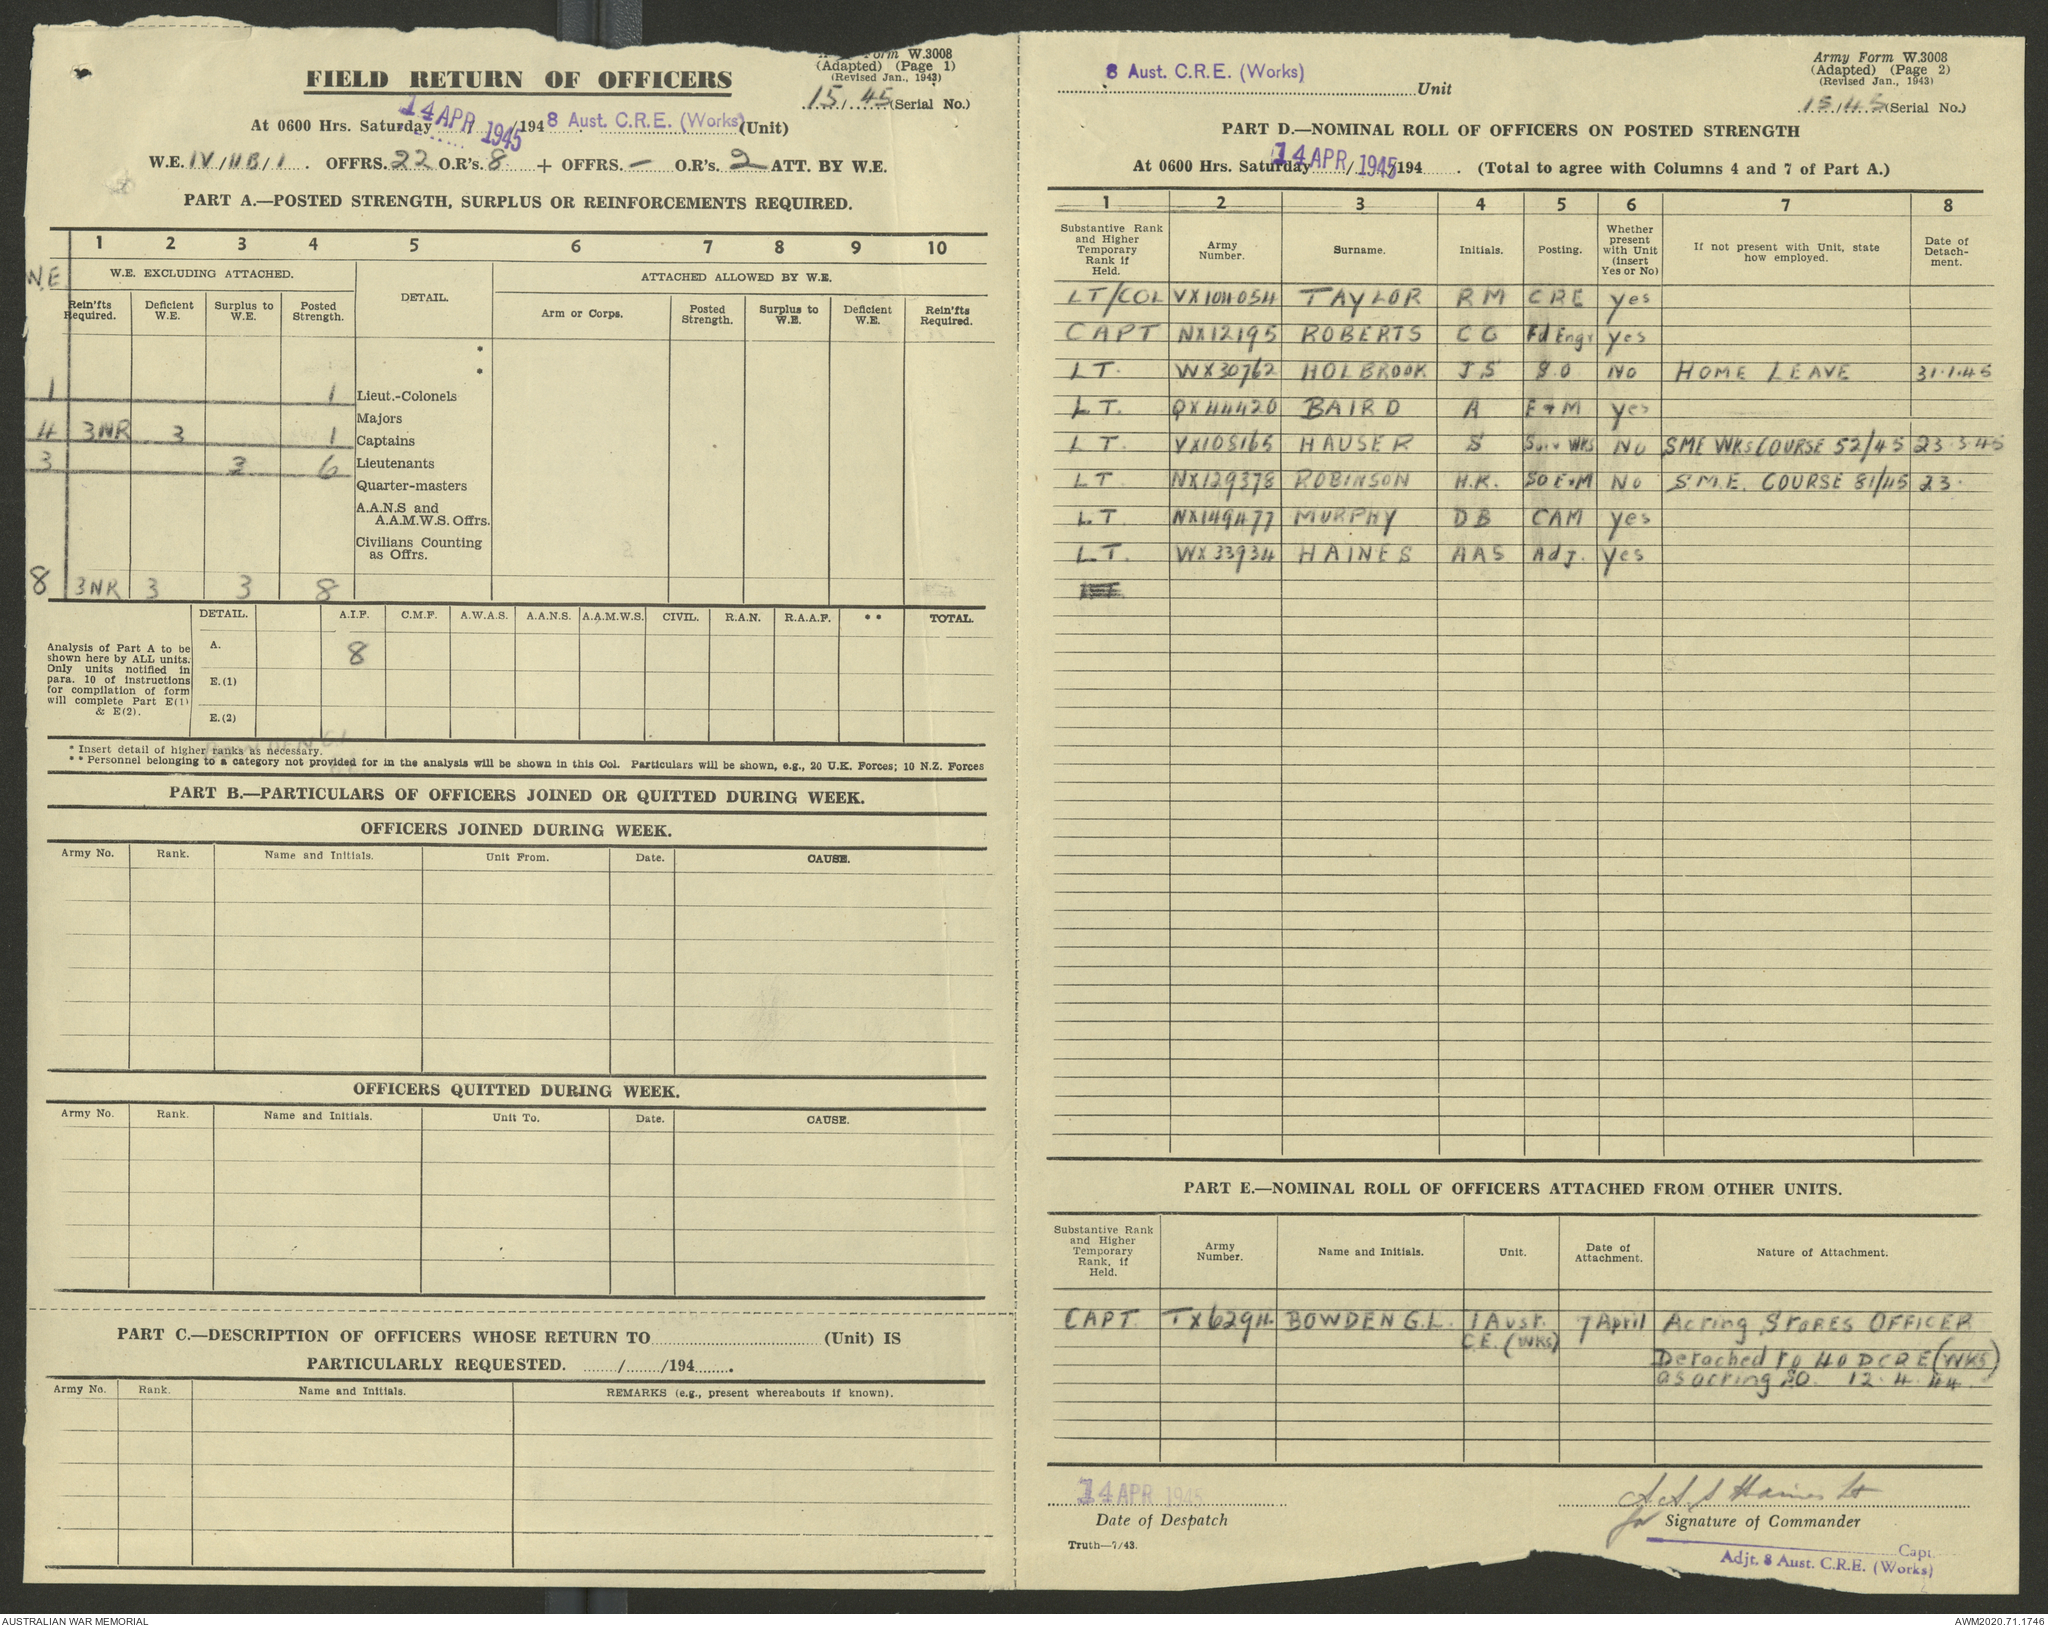 Army Form W.3008
(Adapted) (Page 1)
(Revised Jan., 1943)
FIELD RETURN OF OFFICERS
15/45 (Serial No.)
At 0600 Hrs. Saturday 14 APR 1945 /194 8 Aust. C.R.E. (Works) (Unit)
W.E. IV/11B/1 . OFFRS. 22 O.R's. 8 + OFFRS. — O.R's. 2 ATT. BY W.E.
PART A.—POSTED STRENGTH, SURPLUS OR REINFORCEMENTS REQUIRED.
1 2 3 4 5 6 7 8 9 10
W.E.
W.E. EXCLUDING ATTACHED. DETAIL. ATTACHED ALLOWED BY W.E.
Rein'fts Required. Deficient W.E. Surplus to W.E. Posted Strength. Arm or Corps. Posted Strength. Surplus to W.E. Deficient W.E. Rein'fts Required.
*
*
1 1 Lieut.-Colonels
Majors
4 3NR 3 1 Captains
3 3 6 Lieutenants
Quarter-masters
A.A.N.S and
A.A.M.W.S. Offrs.
Civilians Counting
as Offrs.
8 3NR 3 3 8
DETAIL. A.I.F. C.M.F. A.W.A.S. A.A.N.S. A.A.M.W.S. CIVIL. R.A.N. R.A.A.F. ** TOTAL.
Analysis of Part A to be
shown here by ALL units.
Only units notified in
para. 10 of instructions
for compilation of form
will complete Part E(1)
& E(2).
A. 8
E.(1)
E.(2)
* Insert detail of higher ranks as necessary.
** Personnel belonging to a category not provided for in the analysis will be shown in this Col. Particulars will be shown, e.g., 20 U.K. Forces; 10 N.Z. Forces
PART B.—PARTICULARS OF OFFICERS JOINED OR QUITTED DURING WEEK.
OFFICERS JOINED DURING WEEK.
Army No. Rank. Name and Initials. Unit From. Date. CAUSE.
OFFICERS QUITTED DURING WEEK.
Army No. Rank. Name and Initials. Unit To. Date. CAUSE.
PART C.—DESCRIPTION OF OFFICERS WHOSE RETURN TO (Unit) IS
PARTICULARLY REQUESTED. / /194 .
Army No. Rank. Name and Initials. REMARKS (e.g., present whereabouts if known).
Army Form W.3008
(Adapted) (Page 2)
(Revised Jan., 1943)
8 Aust. C.R.E. (Works) Unit
15/45 (Serial No.)
PART D.—NOMINAL ROLL OF OFFICERS ON POSTED STRENGTH
At 0600 Hrs. Saturday 14 APR 1945 / /194 . (Total to agree with Columns 4 and 7 of Part A.)
1 2 3 4 5 6 7 8
Substantive Rank and Higher Temporary Rank if Held. Army Number. Surname. Initials. Posting. Whether present with Unit (insert Yes or No) If not present with Unit, state how employed. Date of Detachment.
LT/COL VX104054 TAYLOR RM CRE yes
CAPT NX12195 ROBERTS CG Fd Engr yes
LT. WX30762 HOLBROOK JS SO NO HOME LEAVE 31.1.45
LT. QX44420 BAIRD A E+M yes
LT. VX108165 HAUSER S WKS NO SME WKS COURSE 52/45 23.3.45
LT. NX129378 ROBINSON H.K. SO E+M NO S.M.E. COURSE 81/45 23.
LT. NX149477 MURPHY DB CAM yes
LT. WX33934 HAINES AAS Adj. yes
PART E.—NOMINAL ROLL OF OFFICERS ATTACHED FROM OTHER UNITS.
Substantive Rank and Higher Temporary Rank, if Held. Army Number. Name and Initials. Unit. Date of Attachment. Nature of Attachment.
CAPT. BOWDEN G.L. 1 Aust. 7 April Acting STORES OFFICER
C.E. (WKS)
Detached to 40 DCRE (WKS)
as acting SO. 12.4.44
14 APR 1945
A A S Haines Lt
Date of Despatch
for Signature of Commander
Truth—7/43.
Capt.
Adjt. 8 Aust. C.R.E. (Works)
AUSTRALIAN WAR MEMORIAL
AWM2020.71.1746